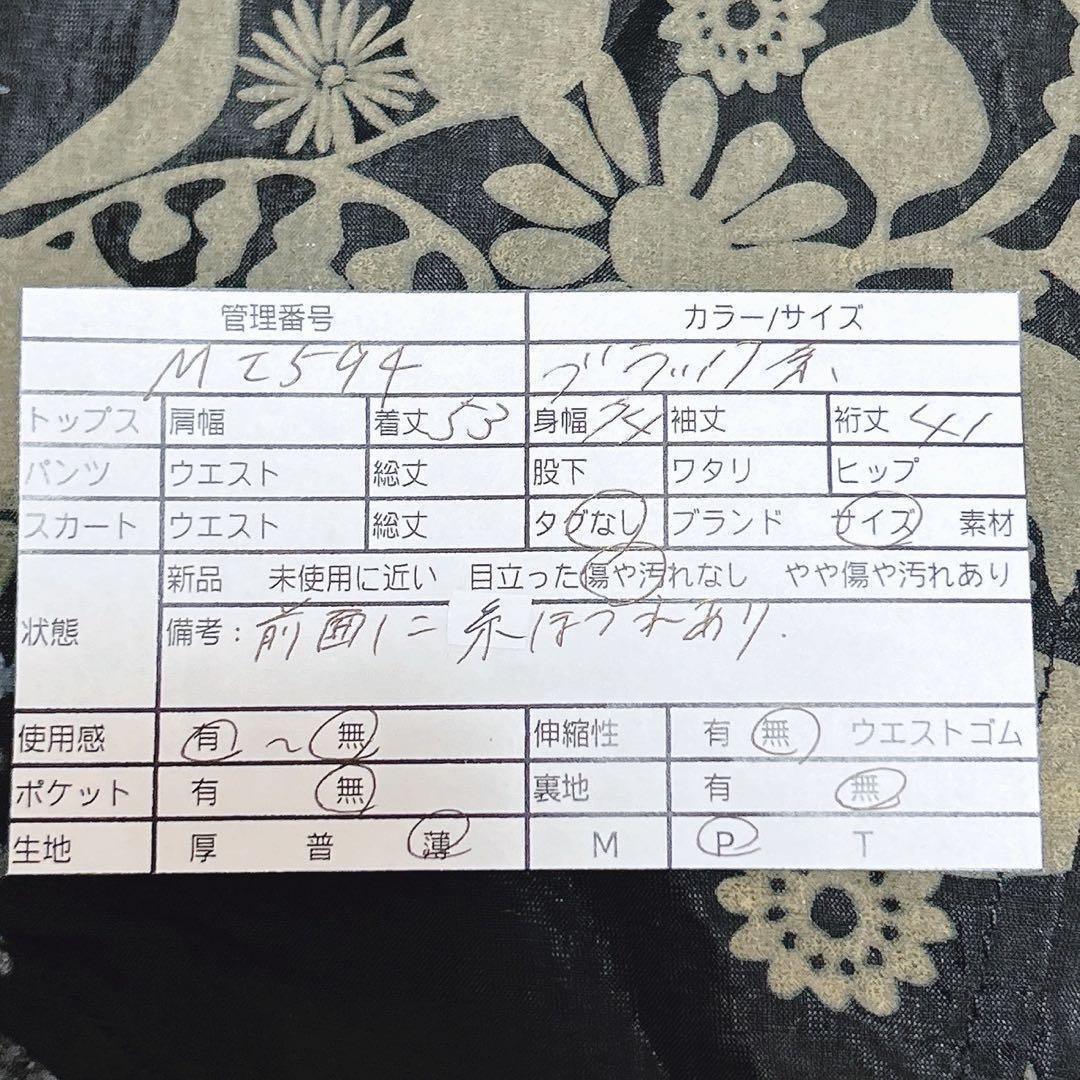 管理番号 カラー/サイズ
MI594 ブラック系
トップス 肩幅 着丈 53 身幅 74 袖丈 裄丈 41
パンツ ウエスト 総丈 股下 ワタリ ヒップ
スカート ウエスト 総丈 タグなし ブランド サイズ 素材
新品 未使用に近い 目立った傷や汚れなし やや傷や汚れあり
状態 備考:前面に糸ほつれあり.
使用感 有 ~ 無 伸縮性 有 無 ウエストゴム
ポケット 有 無 裏地 有 無
生地 厚 普 薄 M P T